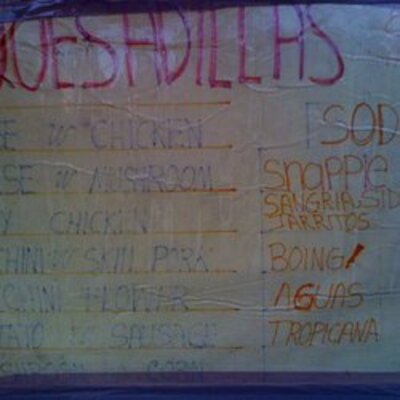 QUESADILLAS
SE w/ CHICKEN
SE w/ MUSHROOM
Y CHICKEN
CHINI w/ SKIN PORK
FLOWER
TATO w/ SAUSAGE
SHROOM CORN
SOD
SNAPPLE
SANGRIA SID
JARRITOS
BOING!
AGUAS
TROPICANA